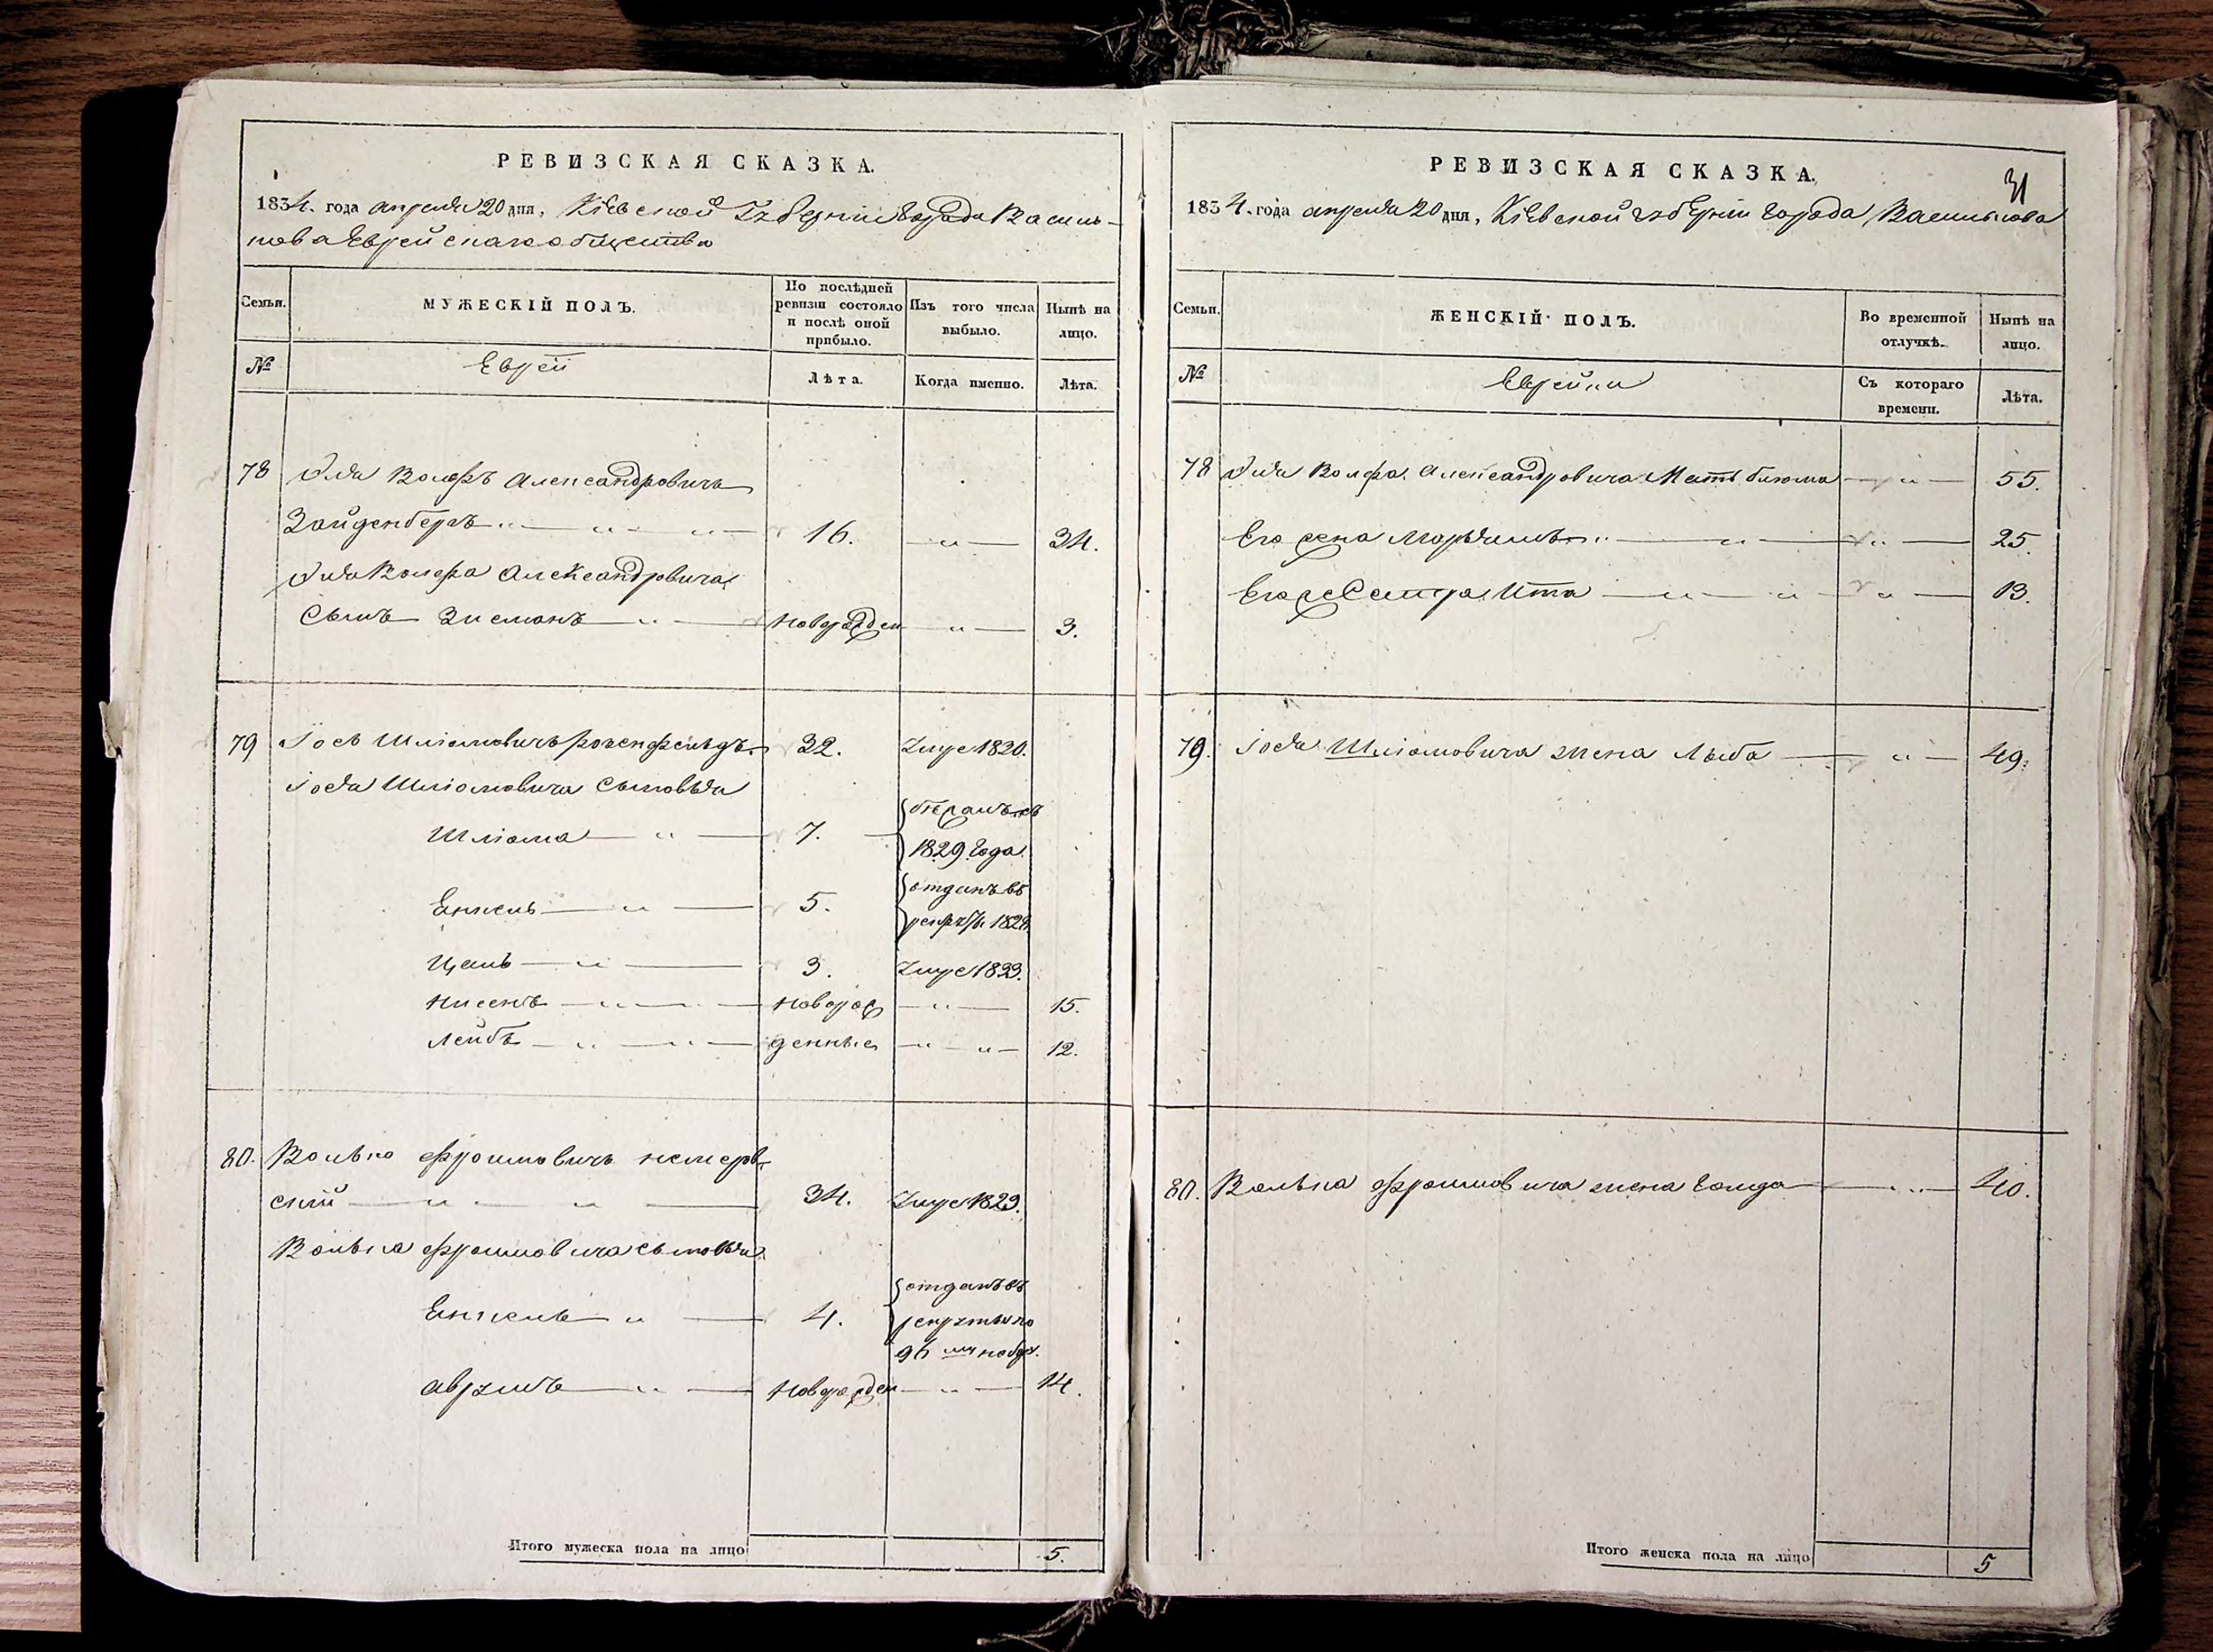 РЕВИЗСКАЯ СКАЗКА.
1834. года апреля 20 дня, Кіевской Губерніи города Василь-
кова Еврейскаго общества
Семьи.
МУЖЕСКІЙ ПОЛЪ.
По послѣдней ревизіи состояло и послѣ оной прибыло.
Изъ того числа выбыло.
Нынѣ на лицо.
№
Евреи
Лѣта.
Когда именно.
Лѣта.
78 Эля Волфъ Александровичъ
Зайденбергъ 16. 34.
Эля Волфа Александровича
Сынъ Зисманъ новорожден 3.
79 Іось Шліомовичъ розенфельдъ 32. Умре 1820.
Іося Шліомовича Сыновья
Шліома 7. бѣжалъ съ
1829 Года
Енкель 5. отданъ въ
рекруты 1828.
Цаль 3. Умре 1833.
Нисенъ новорож 15.
Лейбъ денные 12.
80. Волько Фроимовичъ немеров-
скій 34. Умре 1829.
Волька Фроимовича Сыновья
Енкель 4. отданъ въ
рекруты по
96 му набор.
Аврумъ новорожден 14.
Итого мужеска пола на лицо 5.
31
РЕВИЗСКАЯ СКАЗКА.
1834. года апреля 20 дня, Кіевской губерніи города Василькова
Семьи.
ЖЕНСКІЙ ПОЛЪ.
Во временной отлучкѣ.
Нынѣ на лицо.
№
Еврейки
Съ котораго времени.
Лѣта.
78 Эля Волфа Александровича Мать блюма 55.
Его жена 25.
Его Сестра Ита 13.
79. Іося Шліомовича жена Лыба 49.
80. Волька Фроимовича жена Голда 40.
Итого женска пола на лицо 5